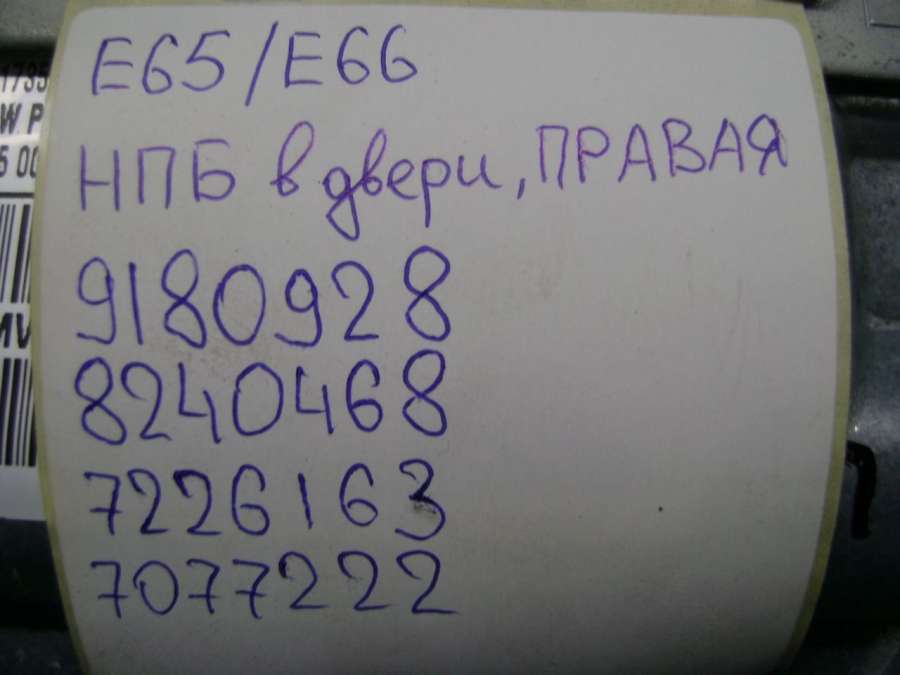 E65/E66
НПБ в двери, ПРАВАЯ
9180928
8240468
7226163
7077222